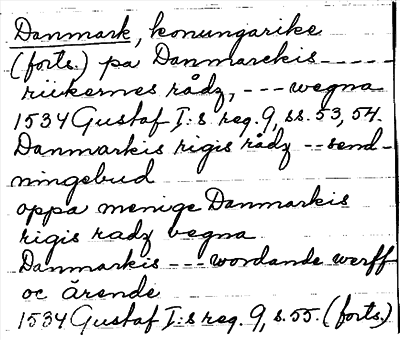 Danmark, konungarike
(forts.) pa Danmarckis - - - - -
riikernes rådz, - - - wegna
1534 Gustaf I:s reg. 9, ss. 53, 54.
Danmarkis rigis rådz - - send-
ningebud
oppa menige Danmarkis
rigis radz vegna
Danmarkis - - - wordande werff
oc ärende
1534 Gustaf I:s reg. 9, s. 55. (forts.)